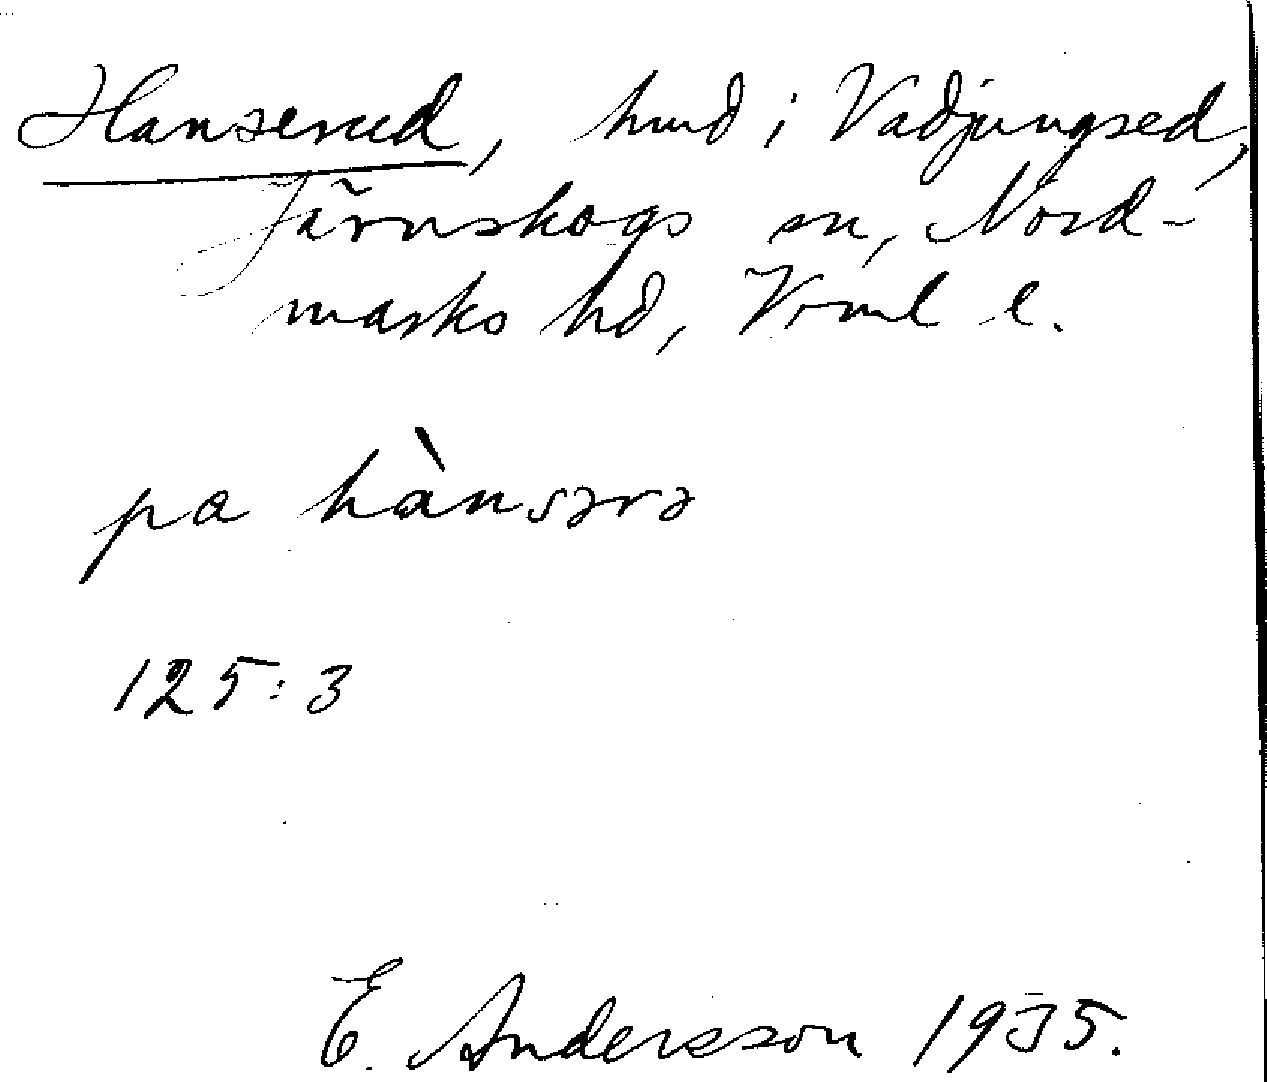 Hanserud, hmd i Vadjungsed,
Järnskogs sn, Nord-
marks hd, Vrml l.
pa hànsərə
125:3
E. Andersson 1935.